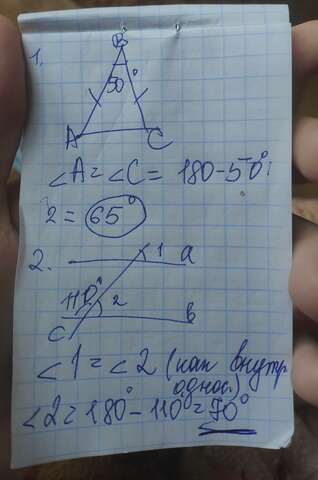 1.
B
50°
A C
∠A = ∠C = 180-50° :
2 = 65°
2.
1 a
110° 2
b
c
∠1 = ∠2 (как внутр
однос.)
∠2 = 180° - 110° = 70°